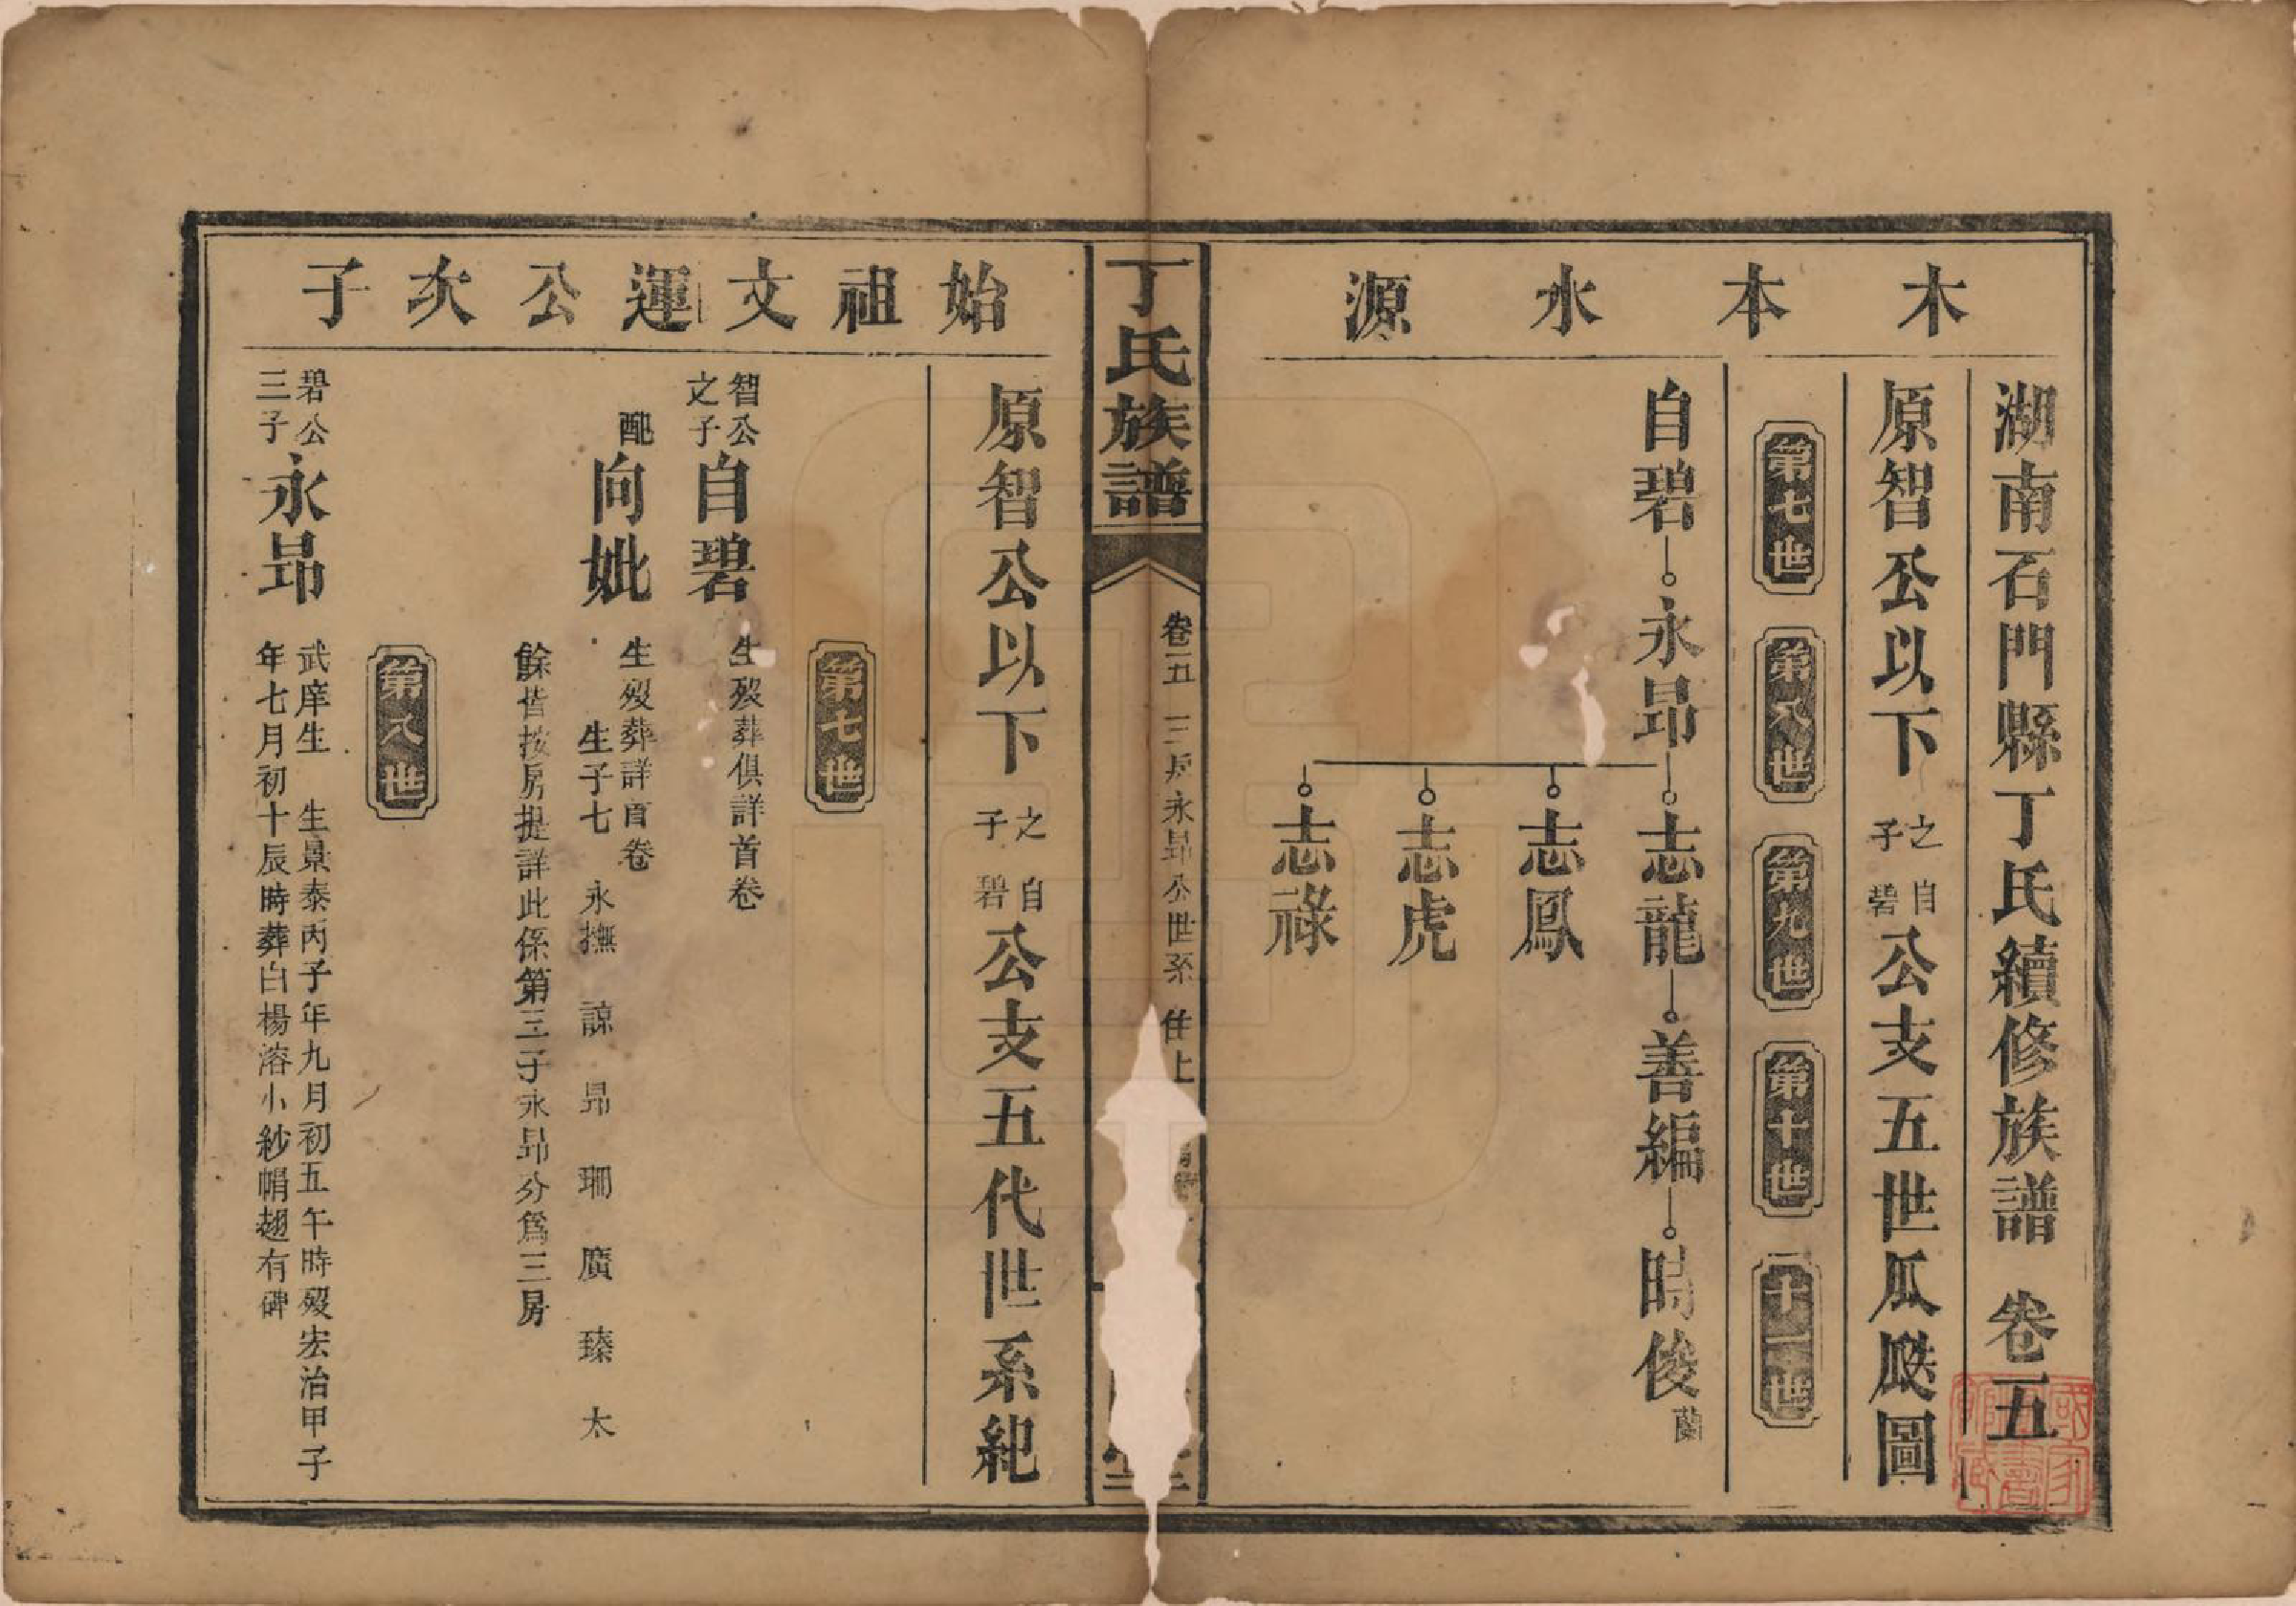 木本水源
湖南石門縣丁氏續修族譜 卷五
原智公以下 之子 自碧 公支五世瓜瓞圖
第七世 第八世 第九世 第十世 十一世
自碧 永昻 志龍 善編 時俊 蘭
志鳳
志虎
志祿
丁氏族譜 卷五 三房永昻公世系 仕上
始祖文運公次子
原智公以下 之子 自碧 公支五代世系紀
第七世
智公之子 自碧 生歿葬俱詳首卷
配向妣 生歿葬詳首卷
生子七 永撫 諒 昻 珊 廣 臻 太
餘皆按房提詳此係第三子永昻分爲三房
第八世
碧公三子 永昻 武庠生 生景泰丙子年九月初五午時歿宏治甲子
年七月初十辰時葬白楊溶小紗帽翅有碑